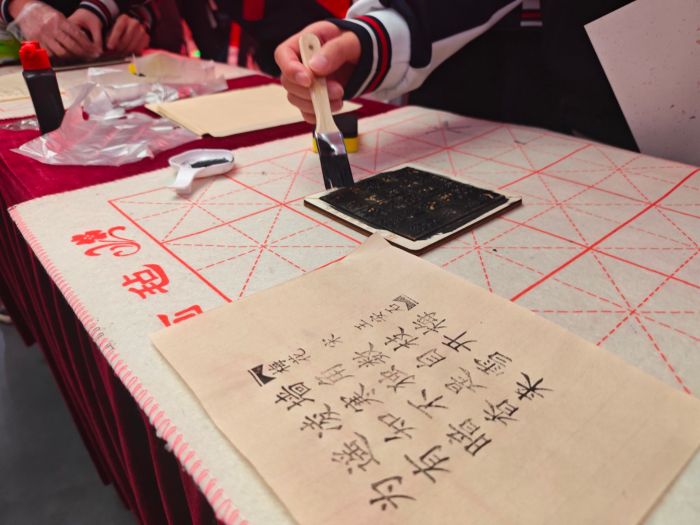 梅花
宋 王安石
墙角数枝梅
凌寒独自开
遥知不是雪
为有暗香来
毡